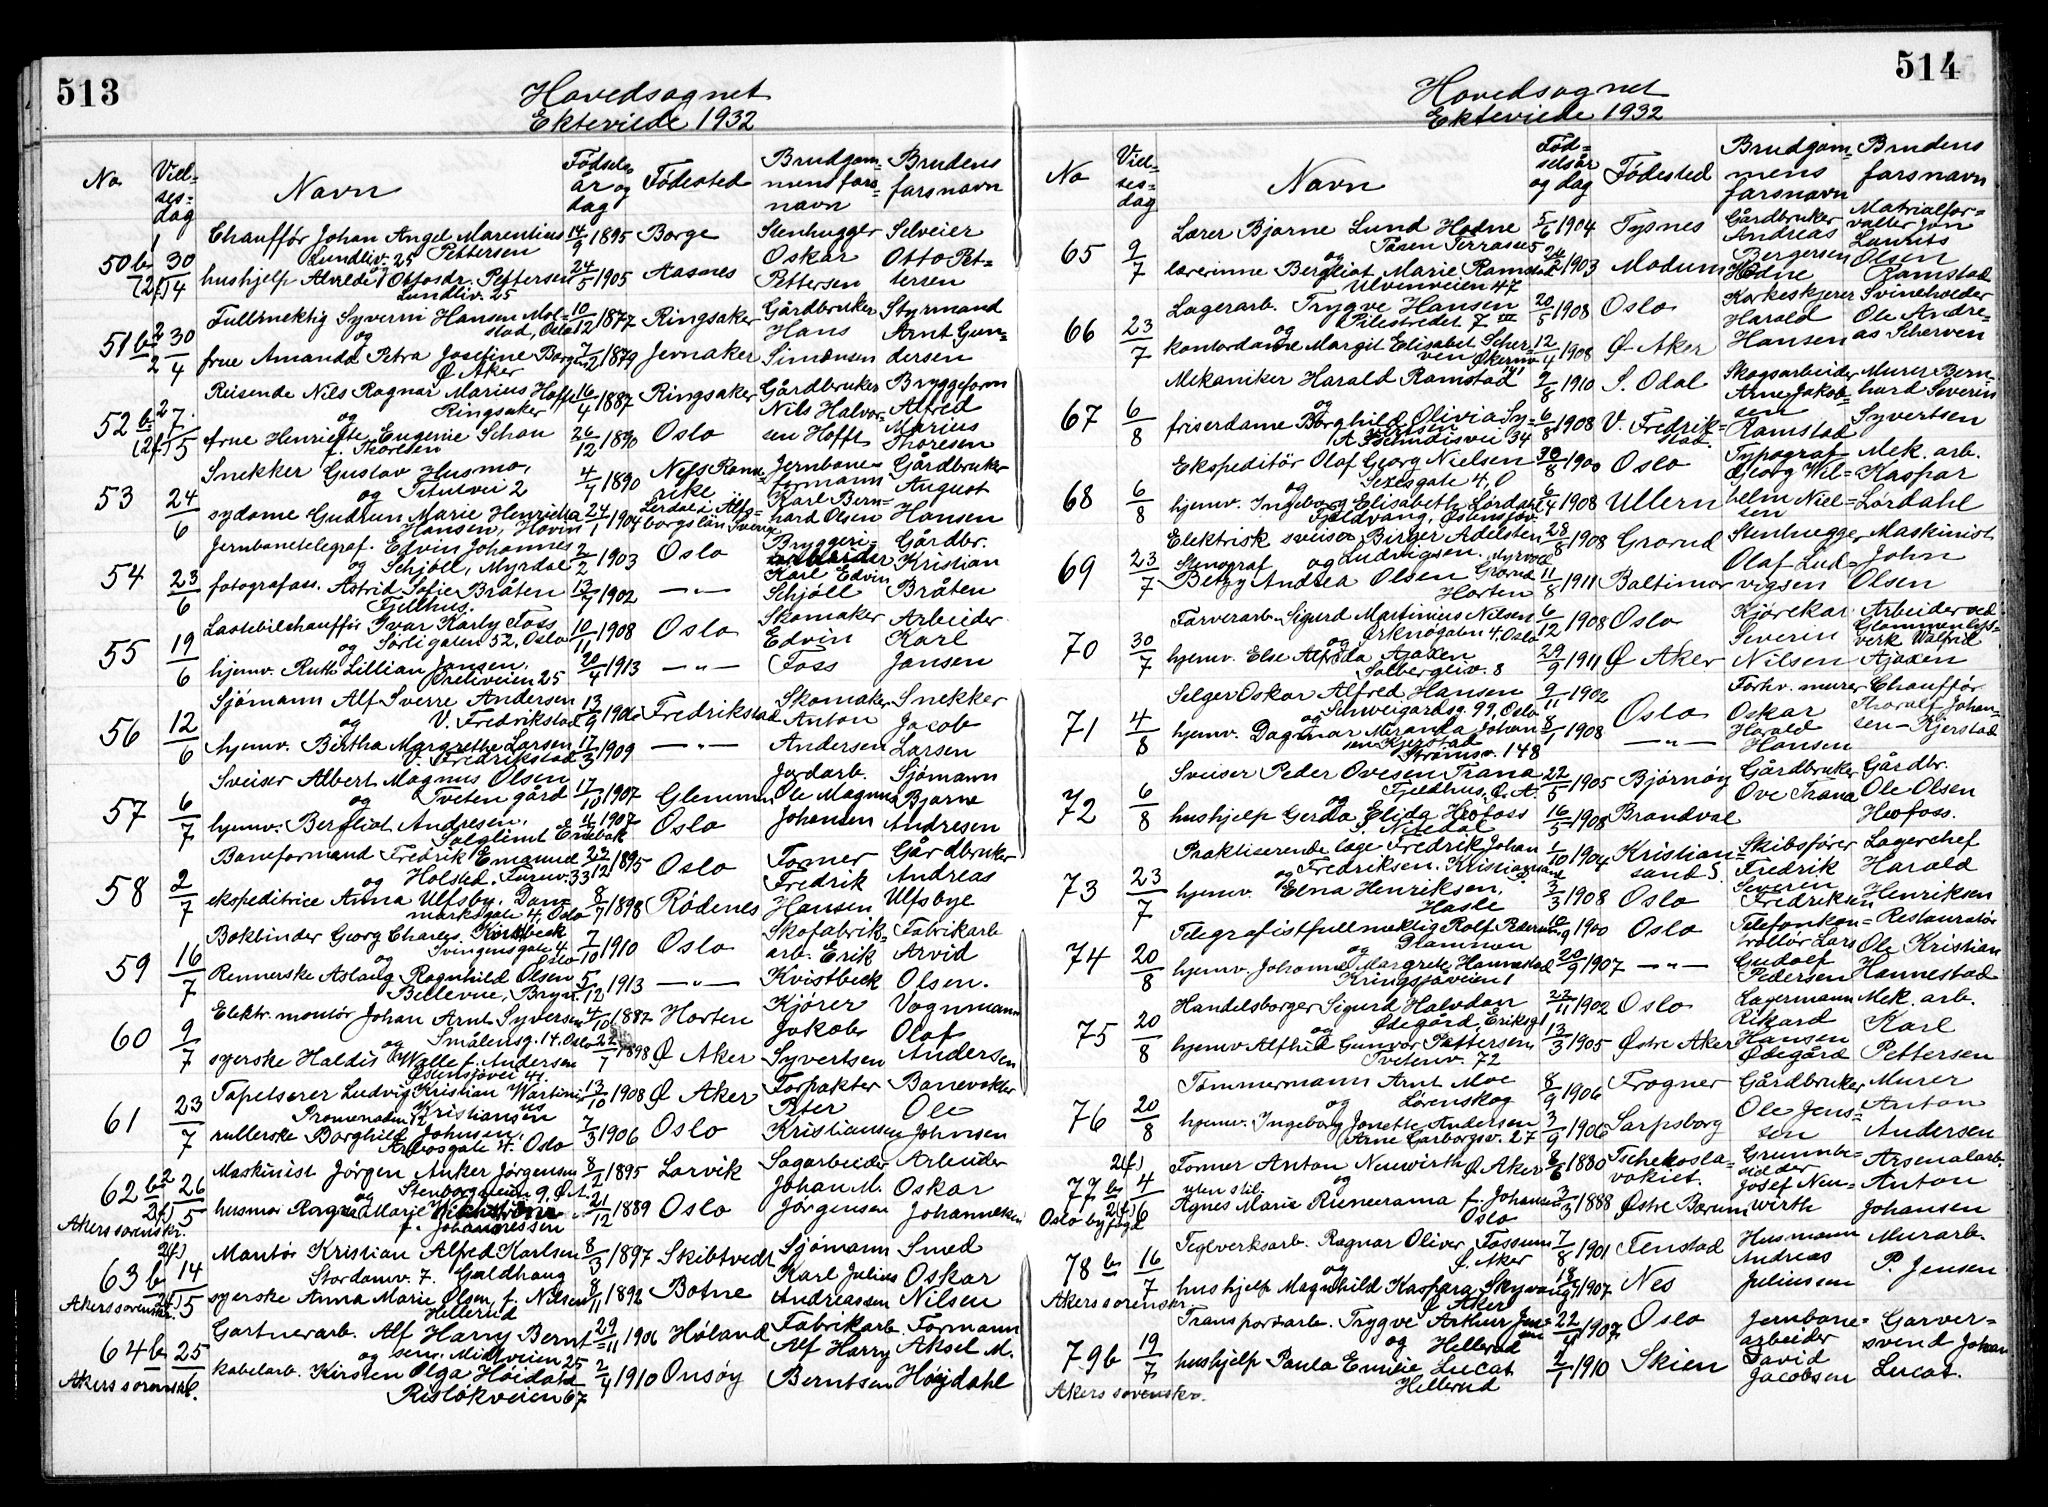 513
Hovedsognet
Ektevilde 1932
No
Viel-
ses-
dag
Navn
Fødsels
år og
dag
Fødested
Brudgom-
mens fars-
navn
Brudens
farsnavn
50b 30/4 Chauffør Johan Angel Marentius 14/9 1895 Borge Stenhugger Selveier
Lundliv. 25 Pettersen Oskar Otto Pet-
hushjelp Ottosdr. Pettersen 24/5 1905 Aasnes Pettersen tersen
Lundliv. 25
51b 30/4 Fullmektig Syverin Hansen Mol- 10/12 1877 Ringsaker Gårdbruker Styrmand
og stad, Oslo Hans Arnt Gun-
frue Amanda Petra Josefine Borge 7/2 1879 Jevnaker Simensen dersen
Ø Aker
52b 7/5 Reisende Nils Ragnar Marius Hofft 16/4 1887 Ringsaker Gårdbruker Bryggeform
og Ringsaker Nils Halvor- Alfred
frue Henriette Eugenie Schou 26/12 1890 Oslo sen Hofft Marius
f. Thoresen Thoresen
53 24/6 Snekker Gustav Husmo, 4/7 1890 Nes Rome- Jernbane- Gårdbruker
og Tituteivei 2 rike formann August
sydame Gudrun Marie Henriette 24/1 1904 Karl Bern- Hansen
Hansen, Hovin borgslän Sverige hard Olsen
54 23/6 Jernbanetelegraf. Edvin Johannes 2/2 1903 Oslo Bryggeri- Gårdbr.
og Schjøll, Myrdal arbeider Kristian
fotografass. Astrid Sofie Bråten 13/7 1902 —"— Karl Edvin Bråten
Fjellhus. Schjøll
55 19/6 Lastebilchauffør Ivar Karly Foss 10/11 1908 Oslo Skomaker Arbeider
og Sørligaten 52, Oslo Edvin Karl
hjemv. Ruth Lillian Jansen, 20/4 1913 —"— Foss Jansen
Preliveien 25
56 12/6 Sjømann Alf Sverre Andersen 13/9 1906 Fredrikstad Skomaker Snekker
og V. Fredrikstad Anton Jacob
hjemv. Bertha Margrethe Larsen 17/3 1909 —"— Andersen Larsen
V. Fredrikstad
57 6/7 Sveiser Albert Magnus Olsen 17/10 1907 Glemmen Jordarb. Sjømann
og Tveten gård Ole Magnus Bjarne
hjemv. Bergliot Andresen. 1907 Oslo Johansen Andresen
Solglimt Enebak
58 2/7 Baneformand Fredrik Emanuel 23/12 1895 Oslo Former Gårdbruker
og Holsted. Fredrik Andreas
ekspeditrice Anna Ulfsby. Dan- 8/7 1898 Rødenes Hansen Ulfsbye
marksgate 4, Oslo
59 16/7 Bokbinder Georg Charles Kvistbeck 7/10 1910 Oslo Skofabrik- Fabrikarb
og Svingensgate 4 Oslo arb. Erik Arvid
Rennerske Aslaug Ragnhild Olsen 5/12 1913 —"— Kvistbeck Olsen.
Bellevue, Bryn
60 9/7 Elektr. montør Johan Arnt Syversen 4/10 1887 Horten Kjører Vognmann
og Smålensg. 14. Oslo Jakob Olaf
syerske Haldis Walle f. Andersen 22/7 1898 Ø Aker Syvertsen Andersen
Østensjøvei 41
61 23/7 Tapetserer Ludvig Kristian Martinius 13/10 1908 Ø Aker Forpakter Banevokter
Promenaden 12 Kristiansen Peter Ole
rullerske Borghild Johnsen, 7/3 1906 Oslo Kristiansen Johnsen
Arbosgate 4. Oslo
62b 26/5 Maskinist Jørgen Anker Jørgensen 8/2 1895 Larvik Sagarbeider Arbeider
og Stenborgveien 9, Ø.A. Johan M. Oskar
husmor Ragna Marie 21/12 1889 Oslo Jørgensen Johannesen
Akers sorenskr. f. Johannessen
63b 14/5 Montør Kristian Alfred Karlsen 8/3 1897 Skibtvedt Sjømann Smed
Stordamv. 7. Galdhaug Karl Julius Oskar
syerske Anna Marie Olsen f. Nilsen 8/11 1892 Botne Andreassen Nilsen
Akers sorenskr. Hellerud
64b 25/6 Gartnerarb. Alf Harry Bernt- 29/11 1906 Høland Fabrikarb. Formann
og sen. Midtveien 25 Alf Harry Aksel M.
kabelarb. Kirsten Olga Høidahl 2/4 1910 Onsøy Berntsen Høydahl
Akers sorenskr. Risløkveien 67
514
Hovedsognet
Ektevilde 1932
No
Viel-
ses-
dag
Navn
Fød-
selsår
og dag
Fødested
Brudgom-
mens
farsnavn
Brudens
farsnavn
65 9/7 Lærer Bjarne Lund Hodne 5/6 1904 Tysnes Gårdbruker Matrialfor-
og Tåsen Terrasse 5 Andreas valter Jon
lærerinne Bergliot Marie Ramstad 1903 Modum Bergersen Laurits
Ulvenveien 47 Hodne Olsen Ramstad
66 23/7 Lagerarb. Trygve Hansen 20/5 1908 Oslo Korkeskjerer Svineholder
og Pilestredet 7 III Harald Ole Andre-
kontordame Margit Elisabet Scher- 12/4 1908 Ø Aker Hansen as Scherven
ven Økernv. 141
67 6/8 Mekaniker Harald Ramstad 9/8 1910 S. Odal Skogsarbeider Murer Bern-
og Arne Jakob- hard Severin
friserdame Borghild Olivia Sy- 6/8 1908 V. Fredrik- sen Syvertsen
vertsen stad Ramstad
68 6/8 Ekspeditör Olaf Georg Nielsen 30/8 1900 Oslo Typograf Mek. arb.
og Sexesgate 4, O Georg Wil- Kaspar
hjemv. Ingeborg Elisabeth Lørdahl 6/4 1908 Ullern helm Niel- Lørdahl
Fjeldvang, Østensjøv. sen
69 23/7 Elektrisk sveiser Birger Adelsten 28/8 1908 Grorud Stenhugger Maskinist
Stenograf og Ludvigsen. Myrvold Olaf Lud- John
Betzy Andrea Olsen Grorud 11/8 1911 Baltimor vigsen Olsen
Horten
70 30/7 Farverarb. Sigurd Martinius Nilsen 6/12 1908 Oslo Kjørekar Arbeider ved
og Ørknøgaten 4. Oslo Severin Glommen
hjemv. Else Alfrida Ajaxen 29/9 1911 Ø Aker Nilsen verk Walfrid
Solbergliv. 8 Ajaxen
71 4/8 Selger Oskar Alfred Hansen 9/11 1902 Oslo Forhv. murer Chauffør
og Schweigårdsg. 99, Oslo Oskar Thoralf Johan-
hjemv. Dagmar Miranda Johan 8/1 1908 —"— Harald sen-Kjerstad
sen Kjerstad Hansen
Strømsv. 148
72 6/8 Sveiser Peder Ovesen Trana 22/5 1905 Bjørnøy Gårdbruker Gårdbr.
og Fjeldhus, Ø. A. Ove Trana Ole Olsen
hushjelp Gerda Elida Heofoss 16/5 1908 Brandval Heofoss.
S. Nitedal
73 23/7 Praktiserende læge Fredrik Johan 1/10 1904 Kristian- Skibsfører Lagerchef
og Fredriksen. Kristiansand sand S. Fredrik Harald
hjemv. Elna Henriksen, 3/3 1908 Oslo Severin Henriksen
Hasle Fredriksen
74 20/8 Telegrafistfullmektig Rolf Pedersen 10/9 1900 Oslo Telefonkon- Restauratør
og Glommen trollør Lars Ole Kristian
hjemv. Johanne Margrete Hannestad 20/9 1907 —"— Gudolf Hannestad
Kringsjåveien 1 Pedersen
75 20/8 Handelsborger Sigurd Halvdan 22/11 1902 Oslo Lagermann Mek. arb.
og Ødegård, Eriksg 1 Rikard Karl
hjemv Alfhild Gunvor Pettersen 13/3 1905 Østre Aker Hansen Pettersen
Tvetenv. 72 Ødegård
76 20/8 Tømmermann Arnt Moe 8/9 1906 Frogner Gårdbruker Murer
og Lørenskog Ole Jens- Anton
hjemv. Ingeborg Jonette Andersen 3/9 1906 Sarpsborg sen Andersen
Arne Garborgsv. 27
77b 4/6 Former Anton Neuwirth Ø Aker 8/6 1880 Tschekosla- Grunnbe- Arsenalarb.
uten stil. og vakiet. sidder Anton
Agnes Marie f. Johansen 3/3 1888 Østre Bærum Josef Neu- Johansen
Oslo byfogd Oslo wirth
78b 16/7 Teglverksarb. Ragnar Oliver Fossum 7/8 1901 Fenstad Husmann Murarb.
og Ø. Aker Andreas P. Jensen
hushjelp Magnhild Kaspara Skyvaug 18/9 1907 Nes Juliussen
Akers sorenskr. Ø Aker
79b 19/7 Transportarb. Trygve Arthur Jen- 22/4 1907 Oslo Jernbane- Garver-
og Hellerud arbeider svend Johan
hushjelp Paula Emilie Lucat 1/1 1910 Skien David Lucat.
Akers sorenskr. Hellerud Jacobsen